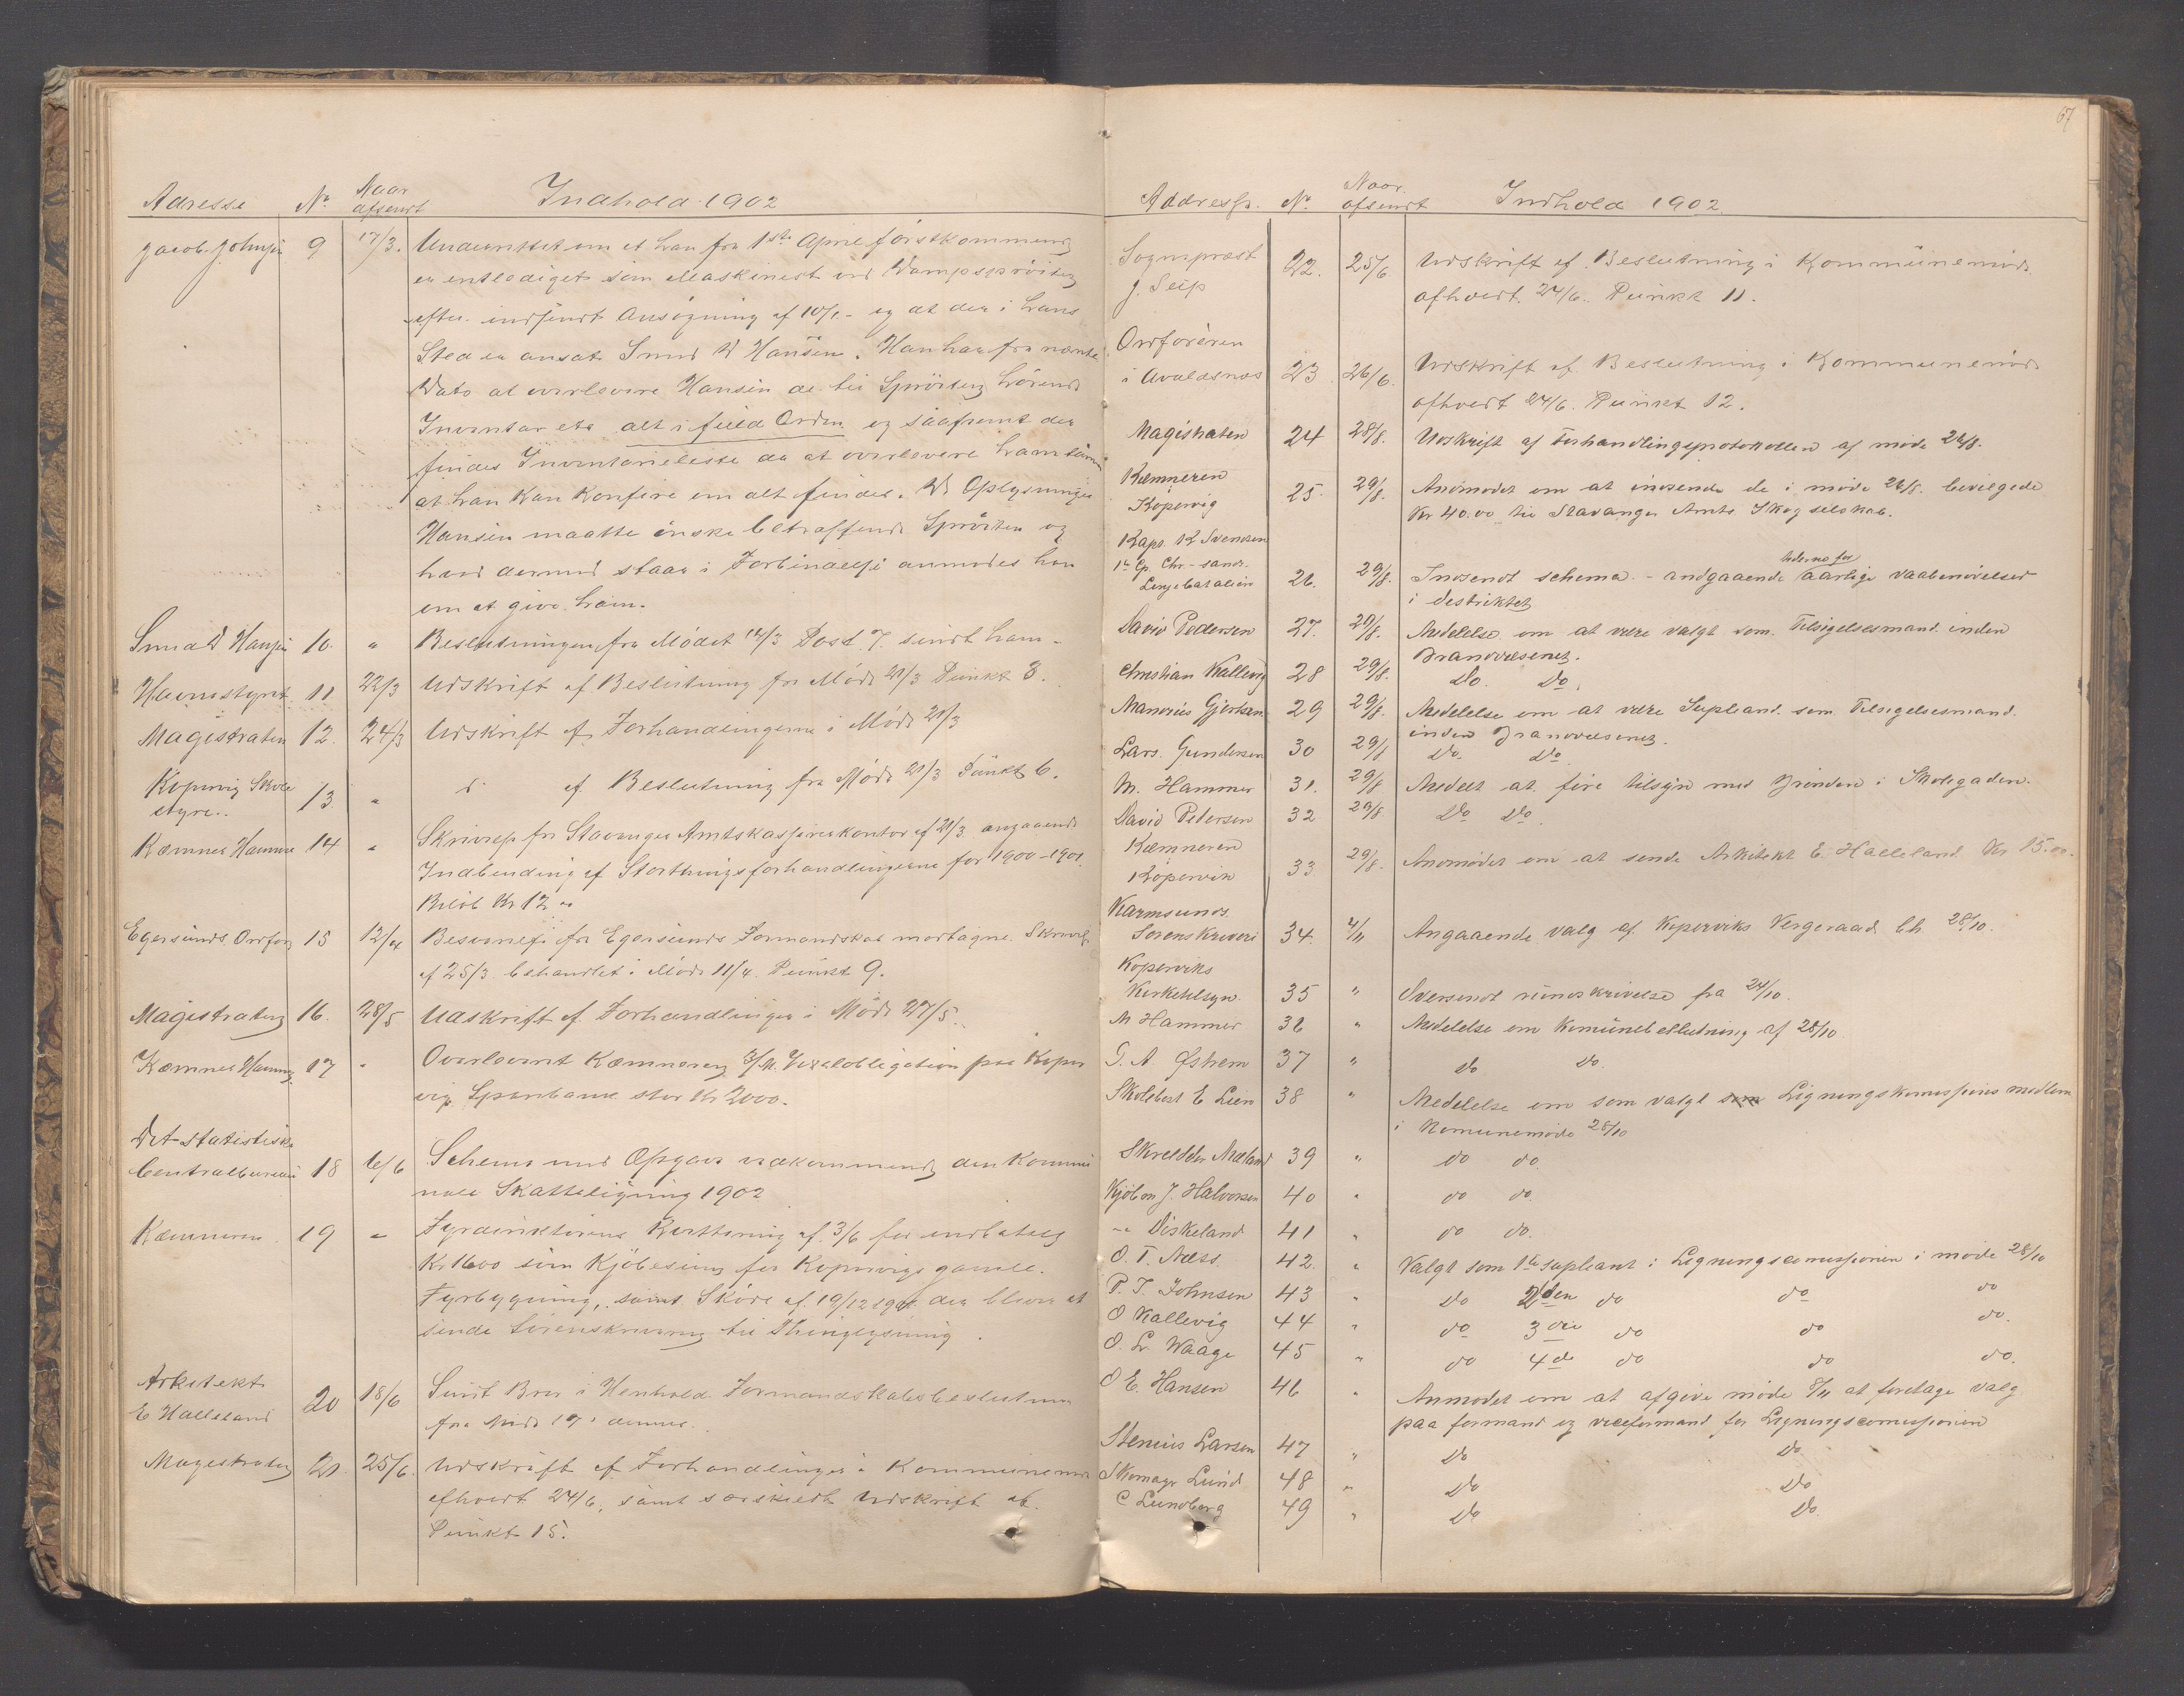 Adresse No Naar afsendt Indhold 1902
Jacob Johnsen 9 17/3. Underrettet om at han fra 1ste April förstkommende
er entlediget som Maskinist ved Dampspröiten
efter indsendt Ansögning af 10/1 - og at der i hans
Sted er ansat Smed D Hansen. Han har fra nævnte
Dato at overlevere Hansen de til Spröiten hörende
Inventar etc alt i fuld Orden og saafremt der
findes Inventarieliste da at overlevere ham
at han kan konfere om alt findes. De Oplysninger
Hansen maatte önske betræffende Spröiten og
hvad dermed staar i Forbindelse anmodes han
om at give ham.
Smed D Hansen 10. " Beslutningen fra Mödet 12/3 Post 7. sendt ham -
Havnestyret 11 22/3 Udskrift af Beslutning fra Möde 21/3 Punkt 3.
Magistraten 12. 24/3 Udskrift af Forhandlingerne i Möde 21/3
Kopervig Skole
styre.. 13 " d. af Beslutning fra Möde 21/3 Punkt 6.
Kæmner Hammer 14 " Skrivelse fra Stavanger Amtskasserer kontor af 21/3 angaaende
Indbinding af Stortingsforhandlingerne for 1900-1901.
Belöb Kr 12 "
Egersunds Ordförer 15 12/4 Besvarelse fra Egersunds Formandskab modtagne Skrivelse
af 25/3 behandlet i Möde 11/4 Punkt 9.
Magistraten 16. 28/5 Udskrift af Forhandlinger i Möde 27/5.
Kæmner Hammer 17 " Overleveret Kæmneren 3/M. Vexelobligation paa Koper
vig Sparebank stor Kr 2000.-
Det statistiske
Centralbureau 18 6/6 Schema med Opgave vedkommende den Kommu
nale Skatteligning 1902
Kæmneren 19 " Fyrdirektörens Kvittering af 3/6 for indbetalt
Kr 1600 som Kjöbesum for Kopervigs gamle
Fyrbygning, samt Sköde af 19/12 1901 der bleve at
sende Sorenskriveren til Thinglysning.
Arkitekt
E Halleland 20 18/6 Sendt Brev i Henhold Formandskabsbeslutning
fra Möde 17' dennes.
Magistraten 21. 25/6. Udskrift af Forhandlinger i Kommunemöde
afholdt 24/6, samt særskildt Udskrift af
Punkt 15.
67
Addresse. No Naar afsendt Indhold 1902
Sognepræst
J. Seip 22. 25/6 Udskrift af Beslutning i Kommünemöde
afholdt 24/6. Punkt 11.
Ordföreren
i Avaldsnes 23 26/6. Udskrift af Beslutning i Kommunemöde
afholdt 24/6. Punkt 12.
Magistraten 24 28/8. Udskrift af Forhandlingsprotokollen af möde 26/8.
Kæmneren
Kopervig 25. 29/8. Anomodet om at indsende de i möde 26/8. bevilgede
Kr 40.00 til Stavanger Amts Skogselskab.
Kapt. K Svendsen
1te Cp. Chr.-sands.
Linjebatalion 26. 29/8. Indsendt schema. - andgaaende aarlige vaabenövelser
i destriktet
David Pedersen 27. 29/8. Medelelse om at være valgt som Tilsigelsesmand inden
Brandvæsenet.
Christian Kallevig 28 29/8. Do. Do.
Mandrius Gjertsen 29 29/8. Medelelse om at være Supleand. som Tilsigelsesmand.
inden Brandvæsenet.
Lars Gundersen 30 29/8 Do. Do
M. Hammer 31. 29/8 Medelt at före tilsyn med Brönden i Skolegaden.
David Petersen 32 29/8 Do Do.
Kæmneren
Kopervik 33 29/8. Anomodet om at sende Arkitekt E. Halleland Kr 15.00.
Karmsunds.
Sorenskriveri 34. 4/11 Angaaende valg af Koperviks Vergeraad bh 28/10.
Koperviks
Kirketilsyn. 35 " Oversendt rundskrivelse fra 24/10.
M Hammer 36 " Medelelse om Komünebeslutning af 28/10
G. A. Östrem 37 " do do.
Skolebest E Lien 38 " Medelelse om som valgt som Ligningskomissions medlem
i Komunemöde 28/10
Skredder Mæland 39 " do do.
Kjöbm J. Halvorsen 40 " do do.
-" Diskeland 41 " do do.
O. T. Næss. 42. " Valgt som 1te supleant i Ligningscomissionen i möde 28/10
P. T. Johnsen 43 " do 2den do do do
O Kallevig 44 " do 3die do do do.
O. L. Waage 45 " do 4de do do do.
O E. Hansen 46 " Anmodet om at afgive möde 8/11 at foretage valg
paa formand og viceformand for Ligningscomissionen
Stenius Larsen 47 " Do Do.
Skomagr Lund 48 " Do Do
C Lundberg 49 " Do Do.